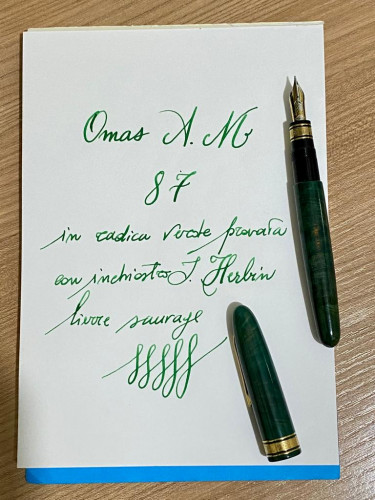 Omas A. M
87
in radica verde provata
con inchiostro J. Herbin
lierre sauvage